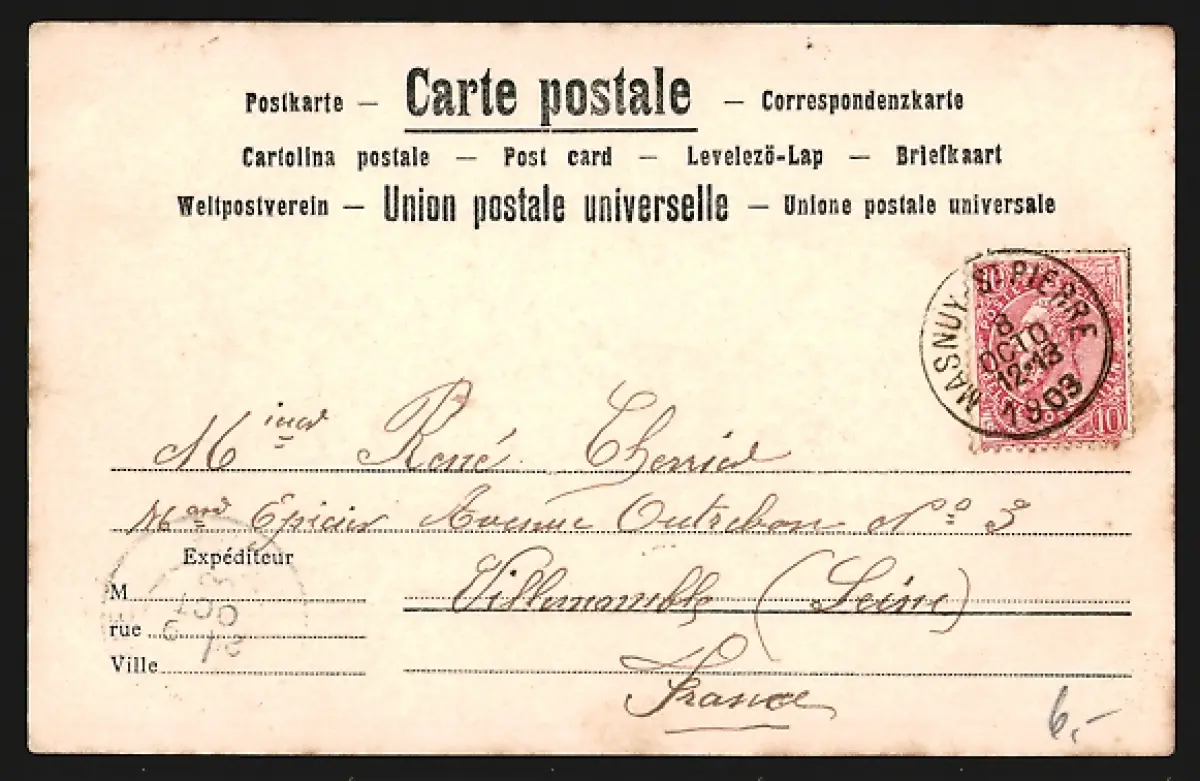 Postkarte — Carte postale — Correspondenzkarte
Cartolina postale — Post card — Levelező-Lap — Briefkaart
Weltpostverein — Union postale universelle — Unione postale universale
MASNUY-ST-PIERRE
8
OCTO
12-13
1903
10
René
Md Épicier Avenue Outrebon No 3
Expéditeur
Villemomble (Seine)
M
OCT
rue
Ville
France
6,-